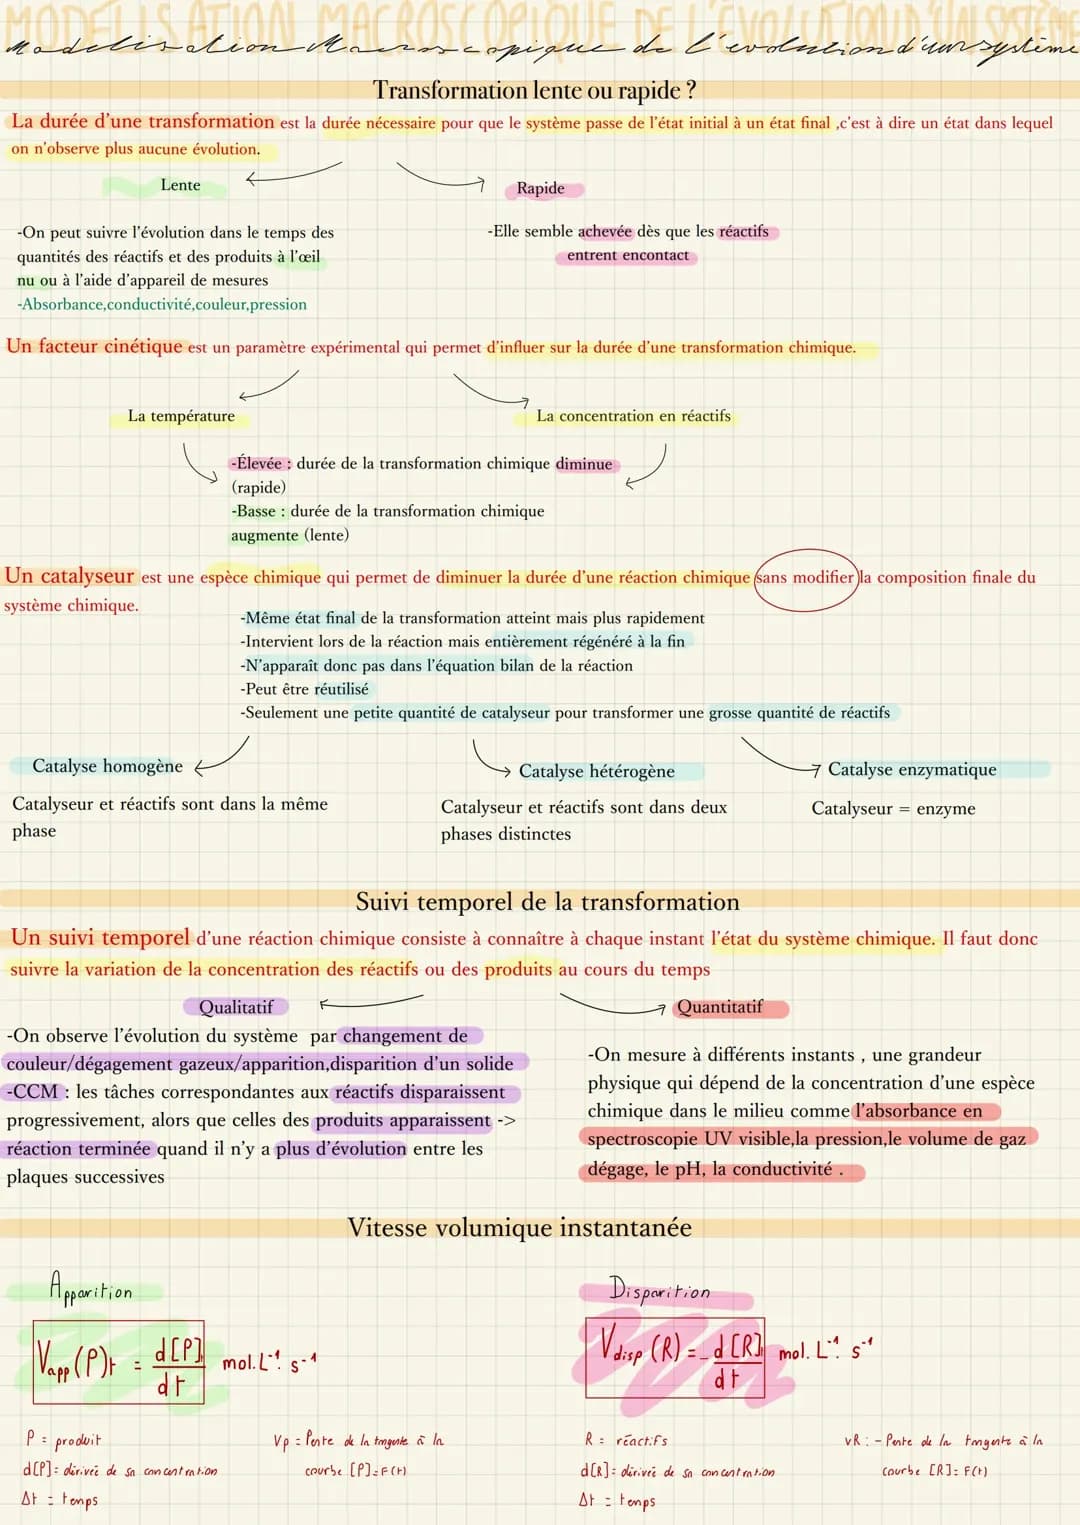 MODELISATION MACROSCOPIQUE DE L'EVOLUTION D'UN SYSTÈME
Modelisation Macroscopique de l'evolution d'un système
Transformation lente ou rapide ?
La durée d'une transformation est la durée nécessaire pour que le système passe de l'état initial à un état final ,c'est à dire un état dans lequel
on n'observe plus aucune évolution.
Lente
Rapide
-On peut suivre l'évolution dans le temps des
quantités des réactifs et des produits à l'œil
nu ou à l'aide d'appareil de mesures
-Absorbance,conductivité,couleur,pression
-Elle semble achevée dès que les réactifs
entrent encontact
Un facteur cinétique est un paramètre expérimental qui permet d'influer sur la durée d'une transformation chimique.
La température
La concentration en réactifs
-Élevée : durée de la transformation chimique diminue
(rapide)
-Basse : durée de la transformation chimique
augmente (lente)
Un catalyseur est une espèce chimique qui permet de diminuer la durée d'une réaction chimique sans modifier la composition finale du
système chimique.
-Même état final de la transformation atteint mais plus rapidement
-Intervient lors de la réaction mais entièrement régénéré à la fin
-N'apparaît donc pas dans l'équation bilan de la réaction
-Peut être réutilisé
-Seulement une petite quantité de catalyseur pour transformer une grosse quantité de réactifs
Catalyse homogène
Catalyse hétérogène
Catalyse enzymatique
Catalyseur et réactifs sont dans la même
phase
Catalyseur et réactifs sont dans deux
phases distinctes
Catalyseur = enzyme
Suivi temporel de la transformation
Un suivi temporel d'une réaction chimique consiste à connaître à chaque instant l'état du système chimique. Il faut donc
suivre la variation de la concentration des réactifs ou des produits au cours du temps
Qualitatif
Quantitatif
-On observe l'évolution du système par changement de
couleur/dégagement gazeux/apparition,disparition d'un solide
-CCM : les tâches correspondantes aux réactifs disparaissent
progressivement, alors que celles des produits apparaissent ->
réaction terminée quand il n'y a plus d'évolution entre les
plaques successives
-On mesure à différents instants , une grandeur
physique qui dépend de la concentration d'une espèce
chimique dans le milieu comme l'absorbance en
spectroscopie UV visible,la pression,le volume de gaz
dégage, le pH, la conductivité .
Vitesse volumique instantanée
Apparition
Vapp (P)t = d[P]/dt mol.L⁻¹. s⁻¹
P = produit
d[P]= dérivée de sa concentration
Δt = temps
Vp = Pente de la tangente à la
courbe [P]=F(t)
Disparition
Vdisp (R) = - d[R]/dt mol. L⁻¹. s⁻¹
R = réactifs
d[R]= dérivée de sa concentration
Δt = temps
vR : - Pente de la tangente à la
courbe [R]= F(t)